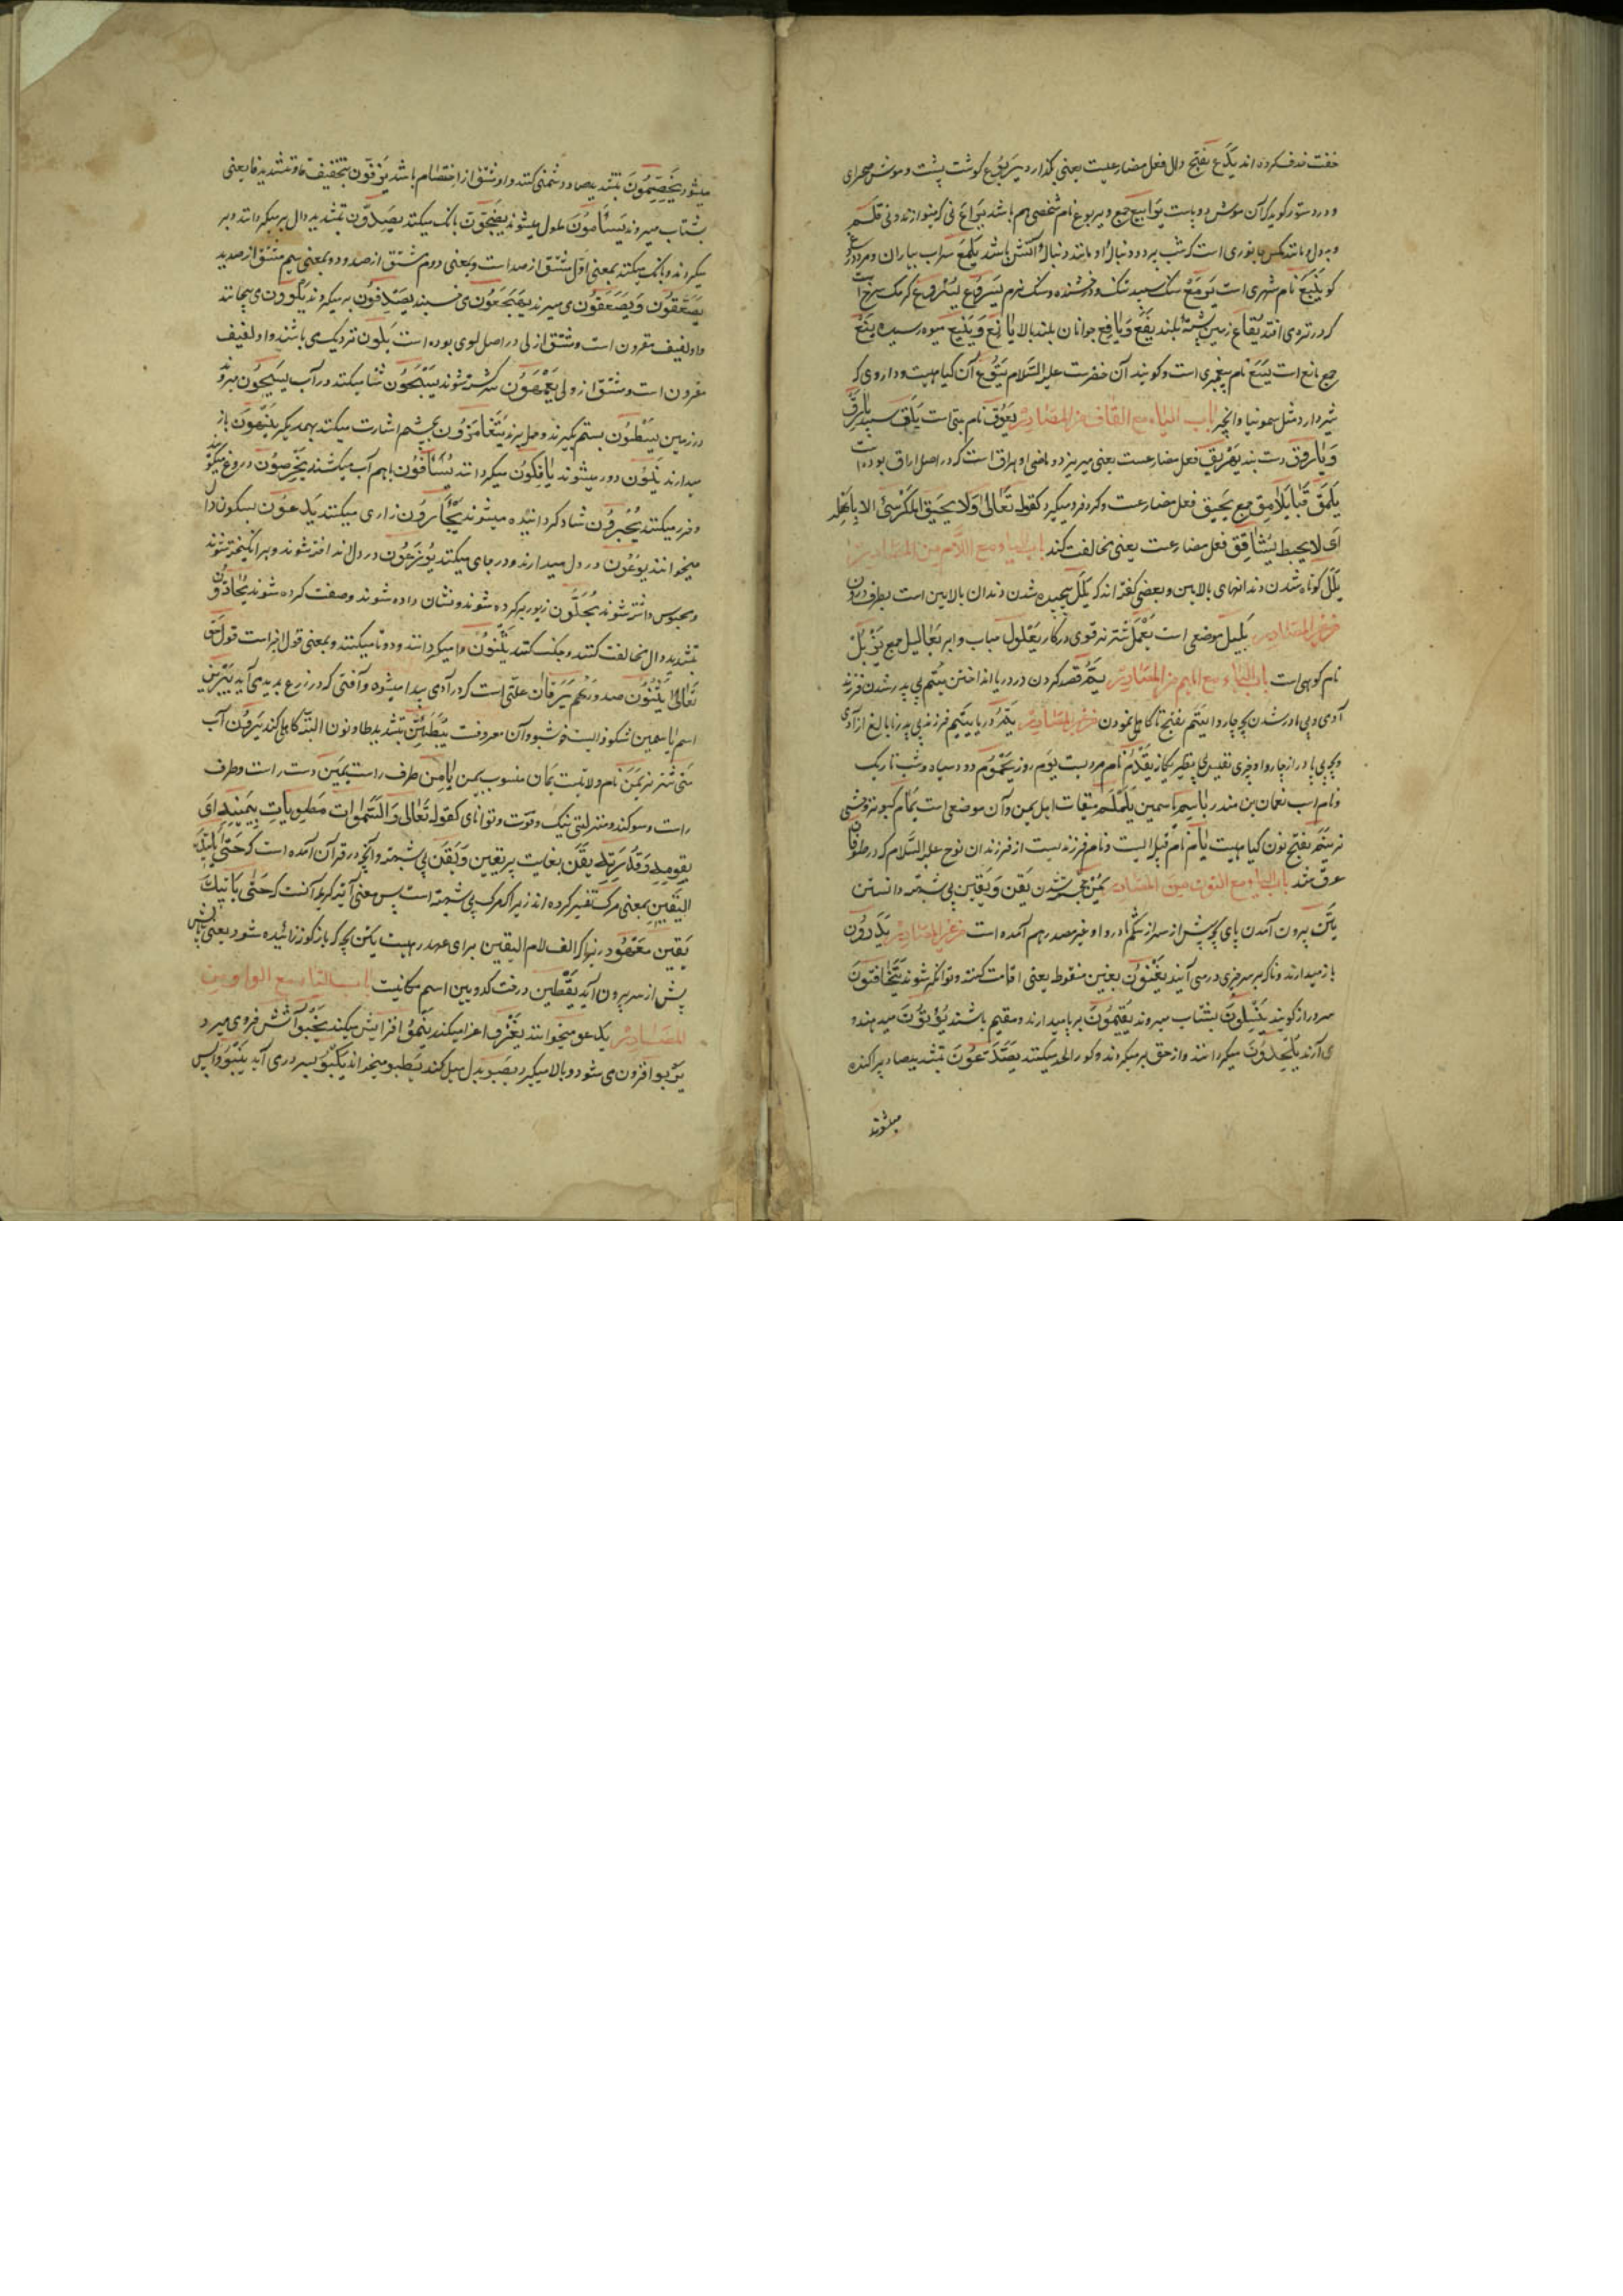 خفت حذف کرده اند یَدَع بفتح دال فعل مضارعست یعنی بگذارد یَربُوع کوشت پشت و موش صحرای
و در دستور کوید که آن موش دو پاست یَرابیع جمع و یربوع نام شخصی هم باشد یَراع نی که بنوازند و نی قلم
و بددل و مانند مکس جانوری است که شب بپرد و دنبال او مانند دنبال آتش باشد یَلمَع سراب
یَنبُع نام شهری است یَرمَع سنک سپید تنک و درخشنده و سنک نرم یُسرُوع کرمک سرخ است
که در تره می افتد یَفاع زمین پشته بلند یَفَع وَیافِع جوانان بلند بالا یانِع وَیَنیع میوه رسیده یَنع
جمع یانع است یَسَع نام پیغمبری است و کویند آن خضرست علیه السّلام یَتُوع آن کیاهیست و داروی که
شیر دارد مثل سقمونیا و انجیر باب الیاء مع القاف من المصَادِر یَعُوق نام بتی است یَلَق سپید یارَق
وَیارَق دست بند یُهَریق فعل مضارعست یعنی میریزد و ماضی او هراق است که در اصل اراق بوده است
یَلمَق قَبا یَلامِق جمع یَحیق فعل مضارعست و کرد فرو میکیرد کقوله تَعالیٰ وَلا یَحیق المَکرُ السَّیِّئُ الا باَهلِه
ای لا یحیط یُشاقِق فعل مضارعست یعنی مخالفت کند باب الیاء مع اللّام من المصَادِر
یَلَل کوتاه شدن دندانهای بالایین و بعضی کفته اند که یَلَل پیچیده شدن دندان بالایین است بطرف درون
من غیر المصَادِر یَلیَل موضعی است یَعمَل شتر نر قوی در کار یَعلُول حباب و ابر یَعالیل جمع یَذبُل
نام کوهی است باب الیاء مع المیم من المصَادِر یَمّ قصد کردن و در دریا انداختن یُتم بی پدر شدن فرزند
آدمی و بی مادر شدن بچه چاروا یَتَم بفتح تا کاهلی نمودن من غیر المصَادِر یَمّ دریا یَتیم فرزند بی پدر نابالغ از آدمی
و بچه بی مادر از چاروا و چیزی نفیس بی نظیر یَقدُم نام مردیست یَوم روز یَحمُوم دود سیاه و شب تاریک
و نام اسب نعمان بن منذر یاسَم یاسمین یَلَملَم میقات اهل یمن و آن موضعی است یَمام کبوتر وحشی
یَنَم بفتح نون کیاهیست یام نام قبیله ایست و نام فرزندیست از فرزندان نوح علیه السّلام که در طوفان
غرق شد باب الیاء مع النون من المصَادِر یُمن خجسته شدن یَقَن وَیَقین بی شبهه دانستن
یَتن بیرون آمدن پای بچه پیش از سر از شکم مادر و او غیر مصدر هم آمده است من غیر المصَادِر یَذَرُون
باز میدارند و ناکاه بر سر چیزی در می آیند یَغنَون بغین منقوط یعنی اقامت کنند و توانکر شوند یَتَخافَتُون
سر و راز کویند یَنسِلُون بشتاب میروند یُقیمُون برپا میدارند و مقیم باشند یُؤتُون میدهند و
می آرند یُلحِدُون میکردانند و از حق برمیکردند و کور لحد میکنند یَصَّدَّعُون بتشدید صاد پراکنده
میشوند
میشوند یَخصِّمُون بتشدید صاد دشمنی کنند و او مشتق از اختصام باشد یَزِفُّون بتخفیف فا و تشدید فا یعنی
بشتاب میروند یَسأَمُون ملول میشوند یَضِجُّون بانک میکنند یَصِدُّون بتشدید دال برمیکردانند و بر
میکردند و بانک میکنند بمعنی اوّل مشتق از صد است و بمعنی دوم مشتق از صدود و بمعنی سیم مشتق از صدید
یَصعَقُون وَیُصعَقُون می میرند یَهجَعُون می خسبند یَصدِفُون برمیکردند یَلوُون می پیچانند
و او لفیف مقرون است و مشتق از لی در اصل لوی بوده است یَلُون نزدیک می باشند و او لفیف
مقرون است و مشتق از ولی یَعمَهُون سرکشته شوند یَسبَحُون شنا میکنند در آب یَسیحُون میروند
در زمین یَسطُون بستم بکیرند و حمله برند یَتَغامَزُون بچشم اشارت میکنند بهمدیکر یَنهَون باز
میدارند یَنأَون دور میشوند یَأفِکُون میکردانند یَستَقُون باهم آب میکشند یَخرُصُون دروغ میکویند
و حزر میکنند یُحبَرُون شاد کردانیده میشوند یَجأَرُون زاری میکنند یَدعُون بسکون دال
میخوانند یُوعُون در دل میدارند و در جای میکنند یُوزَعُون در دل انداخته شوند و برانکیخته شوند
و محبوس داشته شوند یُحَلَّون زیور بر کرده شوند و نشان داده شوند و صفت کرده شوند یُحادُّون
بتشدید دال مخالفت کنند و جنک کنند یَثنُون وا میکردانند و دوتا میکنند و بمعنی قول اخیر است قول حق
تَعالیٰ یَثنُون صدورهُم یَرَقان علّتی است که در آدمی پیدا میشود و آفتی که در زرع پدید می آید
اسم یاسمین شکوفه ایست خوشبو و آن معروفست یُبَطِّئَنّ بتشدید طا و نون البتّه کاهلی کند یَرُون آب
منی شتر نر یَمَن نام ولایتیست یَمان منسوب بیمن یامِن طرف راست یَمین دست راست و طرف
راست و سوکند و منزلتی نیک و قوت و توانای کقوله تَعالیٰ وَالسَّمٰوات مَطویّات بِیَمینِه ای
بقوّتِه وَقُدرَتِه یَقَن بغایت بر یقین وَیَقَن بی شبهه و آنچه در قرآن آمده است که حَتّیٰ یأتیَکَ
الیَقین بمعنی مرک تفسیر کرده اند زیرا که مرک بی شبهه است پس معنی آیة کریمه آنست که حَتّیٰ یأتیکَ
یَقین مَعهُود زیرا که الف لام الیقین برای عهد است یَتن بچه که باز کونه زائیده شود یعنی پاش
پیش از سر بیرون آید یَقطین درخت کدو یبین اسم مکانیست باب الیاء مع الواو من
المصَادِر یَدعو میخوانند یَغرُو اغرا میکند یَنمُو افزایش میکند یَخبُو آتش فرو می میرد
یَربو افزون می شود و بالا میکیرد یَصبو بدل میل کند یَطبو میخواند یَکبُو بسر در می آید یَنبُو واپس